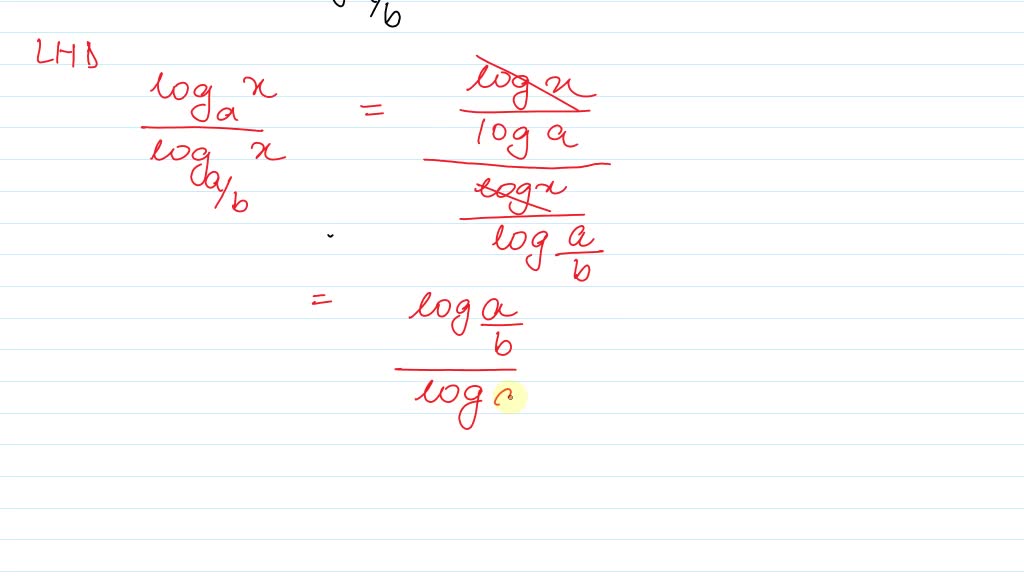 a/b
LHS
log_a x / log_{a/b} x = (log x / log a) / (log x / log a/b)
= log a/b / log